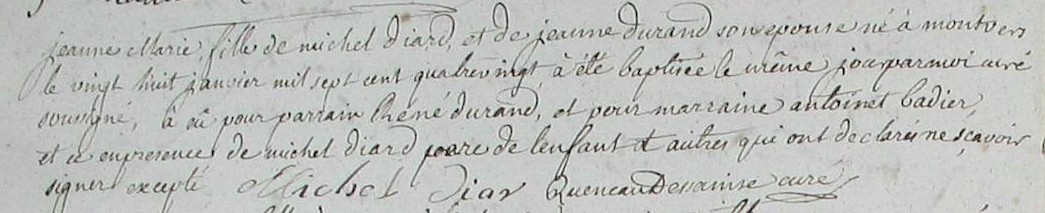 jeanne Marie, fille de michel Diard, et de jeanne durand son epouse né à montvers
le vingt huit janvier mil sept cent quatrevingt à été baptisée le même jour par moi curé
soussigné, à eû pour parrain Réné durand, et pour marraine antoinet badier,
et ce en presence de michel diard pere de lenfant et autres qui ont declarés ne sçavoir
signer excepté Michel Diar curé